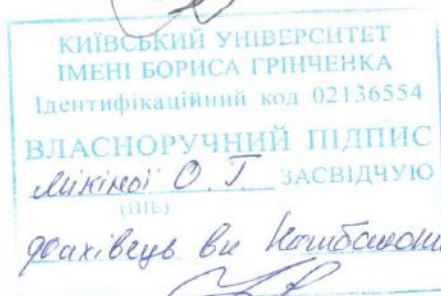 КИЇВСЬКИЙ УНІВЕРСИТЕТ
ІМЕНІ БОРИСА ГРІНЧЕНКА
Ідентифікаційний код 02136554
ВЛАСНОРУЧНИЙ ПІДПИС
Мікіної О. Г. ЗАСВІДЧУЮ
(ПІБ)
фахівець вк